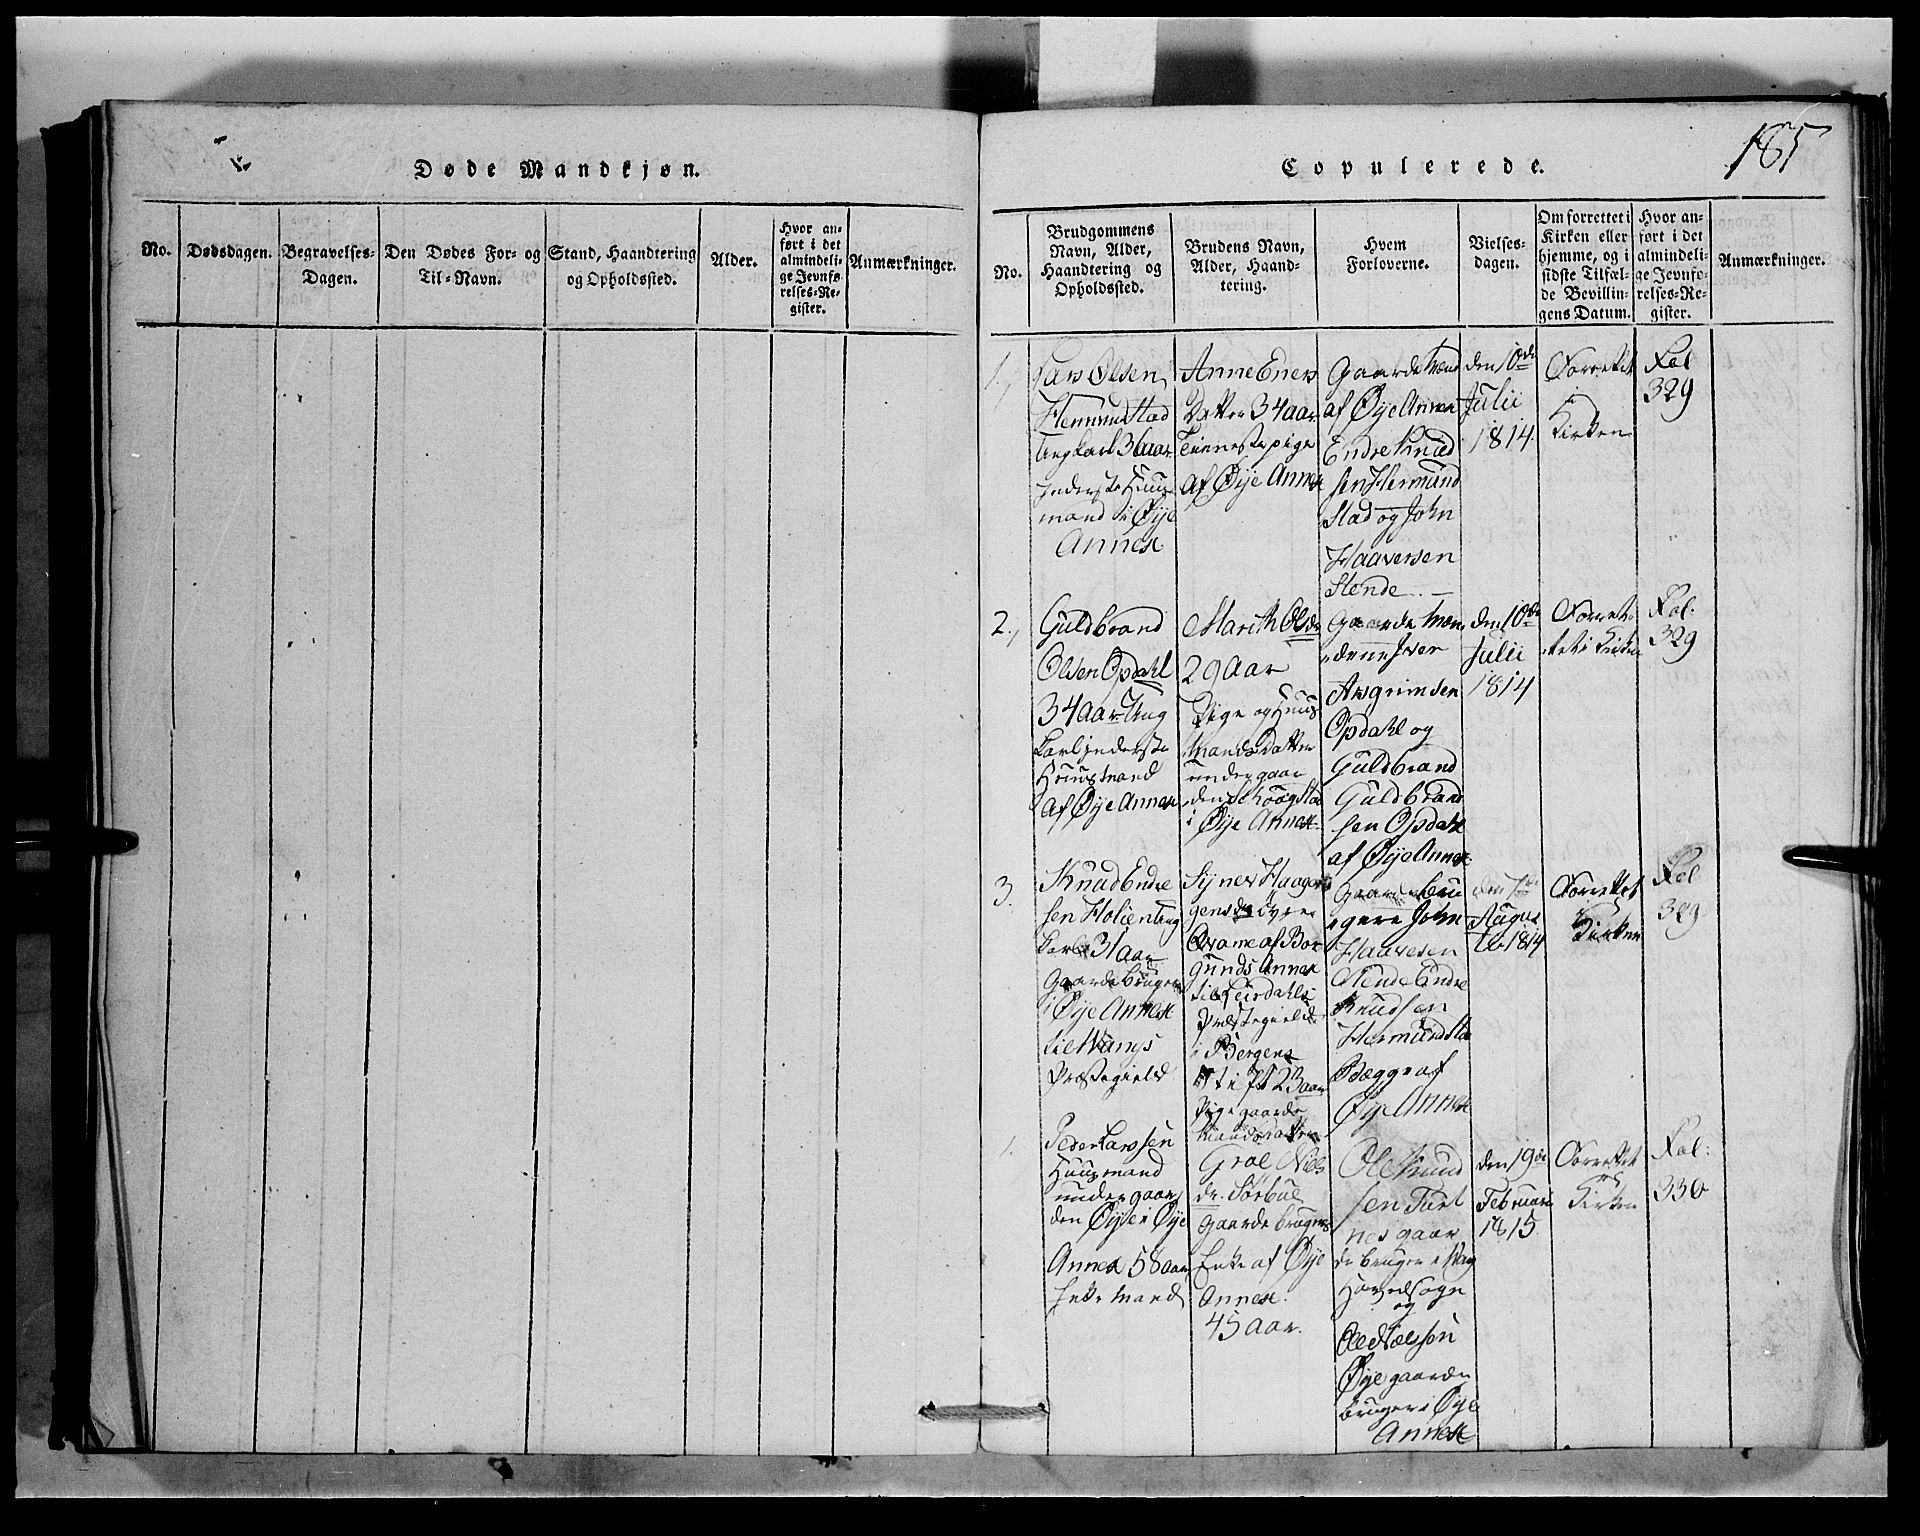 Døde Mandkjøn.
No.
Dødsdagen.
Begravelses-
Dagen.
Den Dødes For- og
Til-Navn.
Stand, Haandtering
og Opholdssted.
Alder.
Hvor an-
ført i det
almindeli-
ge Jevnfø-
relses-Re-
gister.
Anmærkninger.
185
Copulerede.
No.
Brudgommens
Navn, Alder,
Haandtering og
Opholdssted.
Brudens Navn,
Alder, Haand-
tering.
Hvem
Forloverne.
Vielses-
dagen.
Om forrettet i
Kirken eller
hjemme, og i
sidste Tilfæl-
de Bevillin-
gens Datum.
Hvor an-
ført i det
almindeli-
ge Jevnfø-
relses-Re-
gister.
Anmærkninger.
1.
Lars Olsen
Hermunstad
Ungkarl 36 aar
Inderste Huus-
mand i Øije
Annex
Anne Eners
Datter 34 aar
Tieneste pige
af Øije Annex
Gaarde Mænd
af Øye Annex
Endre Knud
sen Hermund
Stad og John
Haaversen
Stende
den 10de
Julii
1814
Forrettet
i
Kirken
Fol
329
2.
Guldbrand
Olsen Opdahl
34 aar Ung
Karl Inderste
Huusmand
af Øije Annex
Marith Olsdr
29 Aar
Pige og Huus
Mands Datter
under gaar
den Schougstad
i Øije Annex
Gaarde Mæn
dene Iver
Asgrimsen
Opdahl og
Guldbrand
Guldbrand
sen Opdahl
af Øije Annex
den 10de
Julii
1814
Forret-
tet i Kirken
Fol.
329
3.
Knud Endre
sen Holien Ung
Karl 31 aar
Gaarde Bruger
i Øije Annex
til Wangs
Præstegield
Synev Haager
Qvame af Bor
gunds Annex
til Leirdahls
Præstegield
i Bergens
Stift 23 aar
Pige gaarde
Mands Datter
Gaarde Bru
gere John
Haavesen
Stende Endre
Knudsen
Hermundsta
Begge af
Øije Annex
den 7de
Augus
ti 1814
Forrettet
i
Kirken
Fol
329
1.
Peder Larssen
Huusmand
under gaar
den Øije i Øije
Annex 58 aar
Enke Mand
Groe Niels
dr. Sørbøe
Gaarde brugers
Enke af Øije
Annex.
45 aar.
Ole Knud
sen Turt
nes gaar
de bruger i Wang
Hovedsogn
og
Ole Nielssen
Øije gaarde
bruger i Øije
Annex
den 19de
Februarii
1815
Forrettet
i
Kirken
Fol:
330